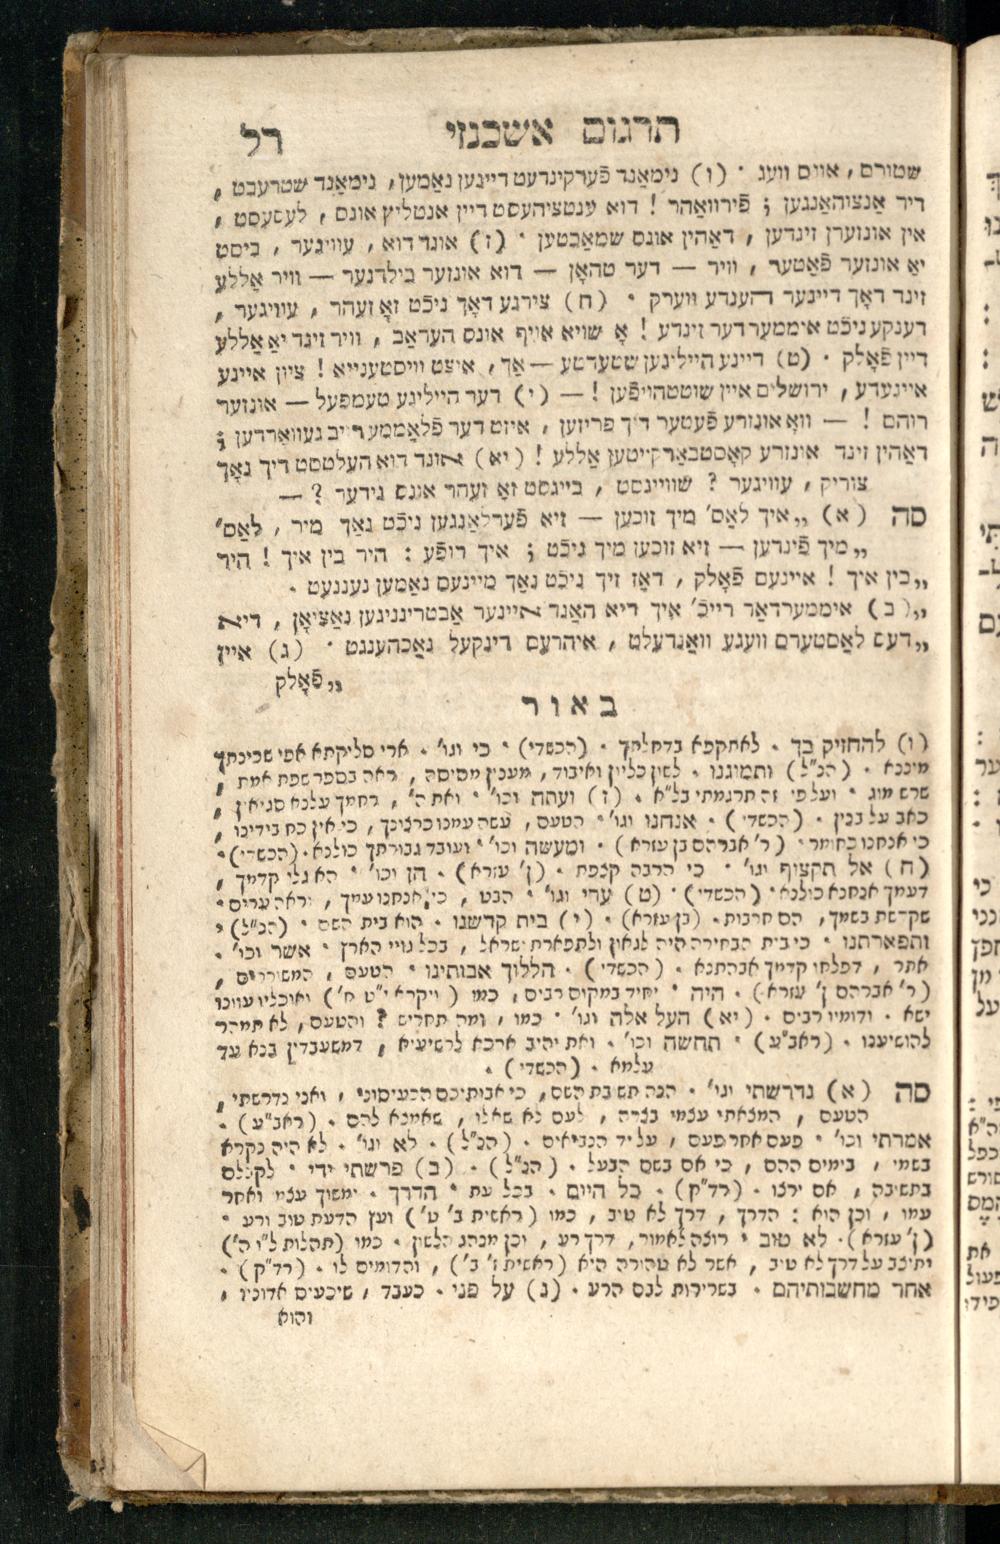 תרגום אשכנזי רל
שטורם, אונס וועג · (ו) נימאַנד פֿערקינדעט דיינען נאַמען, נימאַנד שטרעבט,
דיר אַנצוהאַנגען; פֿירוואַהר! דוא ענטציהעסט דיין אנטליץ אונס, לעסעסט,
אין אונזערן זינדען, דאַהין אונס שמאַכטען · (ז) אונד דוא, עוויגער, ביסט
יאַ אונזער פֿאַטער, וויר — דער טהאָן — דוא אונזער בילדנער — וויר אַללע
זינד דאָך דיינער הענדע ווערק · (ח) צירנע דאָך ניכֿט זאָ זעהר, עוויגער,
דענקע ניכֿט איממער דער זינדע! אָ שויא אויף אונס העראַב, וויר זינד יאַ אַללע
דיין פֿאָלק · (ט) דיינע הייליגען שטעדטע — אַך, איצט וויסטענייא! ציון איינע
איינעדע, ירושלים איין שוטטהויפֿען! — (י) דער הייליגע טעמפעל — אונזער
רוהם! — וואָ אונזרע פֿעטער דיך פריזען, איזט דער פֿלאַממע רויב געוואָרדען;
דאַהין זינד אונזרע קאָסטבאַרקייטען אַללע! (יא) אונד דוא העלטסט דיך נאָך
צוריק, עוויגער? שוויינסט, בייגסט זאָ זעהר אונס נידער? —
סה (א) „איך לאַס' מיך זוכען — זיא פֿערלאַנגען ניכֿט נאַך מיר, לאַס'
„מיך פֿינדען — זיא זוכען מיך ניכֿט; איך רופֿע: היר בין איך! היר
„בין איך! איינעם פֿאָלק, דאָז זיך ניכֿט נאַך מיינעם נאַמען נעננעט ·
„(ב) איממערדאַר רייכֿ' איך דיא האַנד איינער אַבטרינניגען נאַציאָן, דיא
„דעס לאַסטערס וועגע וואַנדעלט, איהרעם דינקעל נאַכהענגט · (ג) איין
„פֿאָלק
באור
(ו) להחזיק בך · לאתקפא בדחלתך · (הכשדי) · כי וגו' · ארי סליקתא אפי שכינתך
מיננא · (הנ"ל) ותמוגנו · לשון כליון ואיבוד, מענין מסיסה, ראה בספר שפת אמת,
שרש מוג · ועל פי זה תרגמתי בל"א · (ז) ועתה וכו' · ואת ה', רחמך עלנא סגיאין,
כאב על בנין · (הכשדי) · אנחנו וגו' · הטעם, עשה עמנו כרצונך, כי אין כח בידינו,
כי אנחנו כחומר · (ר' אברהם בן עזרא) · ומעשה וכו' · ועובד גבורתך כולנא · (הכשדי) ·
(ח) אל תקצוף וגו' · כי הרבה קצפת · (ן' עזרא) · הן וכו' · הא גלי קדמך,
דעמך אנחנא כולנא · (הכשדי) · (ט) ערי וגו' · הבט, כי אנחנו עמך, וראה ערים ·
שקדשת בשמך, הם חרבות · (בן עזרא) · (י) בית קדשנו · הוא בית השם · (הנ"ל) ·
ותפארתנו · כי בית הבחירה היה לגאון ולתפארת ישראל, בכל גויי הארץ · אשר וכו' ·
אתר, דפלחו קדמך אבהתנא · (הכשדי) · הללוך אבותינו · הטעם, המשוררים,
(ר' אברהם ן' עזרא) · היה · יחיד במקום רבים, כמו (ויקרא י"ט ח') ואוכליו עוונו
ישא · ודומיו רבים · (יא) העל אלה וגו' · כמו, ומה תחריש? והטעם, לא תמהר
להושיענו · (ראב"ע) · תחשה וכו' · ואת יהיב ארכא לרשיעיא, דמשעבדין בנא עד
עלמא · (הכשדי) ·
סה (א) נדרשתי וגו' · הנה תשובת השם, כי אבותיכם הכעיסוני, ואני נדרשתי,
הטעם, המצאתי עצמי בצרה, לעם לא שאלו, שאמצא להם · (ראב"ע) ·
אמרתי וכו' · פעם אחר פעם, על יד הנביאים · (הנ"ל) · לא וגו' · לא היה נקרא
בשמי, בימים ההם, כי אם בשם הבעל · (הנ"ל) · (ב) פרשתי ידי · לקבלם
בתשובה, אם ירצו · (רד"ק) · כל היום · בכל עת · הדרך · ימשוך עצמו ואחר
עמו, וכן הוא: הדרך, דרך לא טוב, כמו (ראשית ב' ט') ועץ הדעת טוב ורע ·
(ן' עזרא) · לא טוב · רוצה לאמור, דרך רע, וכן מנהג הלשון · כמו (תהלות ל"ו ה')
יתיצב על דרך לא טוב, אשר לא טהורה היא (ראשית ז' ב'), והדומים לו · (רד"ק) ·
אחר מחשבותיהם · בשרירות לבם הרע · (ג) על פני · כעבד, שיכעים אדוניו,
והוא